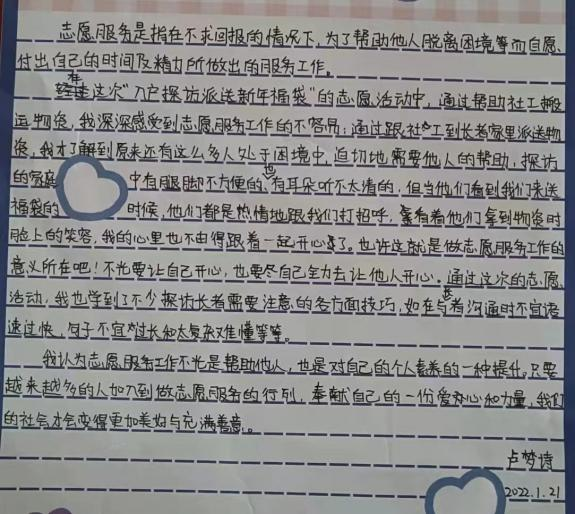 志愿服务是指在不求回报的情况下，为了帮助他人脱离困境等而自愿、
付出自己的时间及精力所做出的服务工作。
在这次“入户探访派送新年福袋”的志愿活动中，通过帮助社工搬
运物资，我深深感受到志愿服务工作的不容易；通过跟社工到长者家里派送物
资，我才了解到原来还有这么多人处于困境中，迫切地需要他人的帮助，探访
的家庭中有腿脚不方便的，也有耳朵听不太清的，但当他们看到我们来送
福袋的时候，他们都是热情地跟我们打招呼，看着他们拿到物资时
脸上的笑容，我的心里也不由得跟着一起开心了。也许这就是做志愿服务工作的
意义所在吧！不光要让自己开心，也要尽自己全力去让他人开心。通过这次的志愿
活动，我也学到了不少探访长者需要注意的各方面技巧，如在与长者沟通时不宜语
速过快，句子不宜过长和太复杂难懂等等。
我认为志愿服务工作不光是帮助他人，也是对自己的个人素养的一种提升。只要
越来越多的人加入到做志愿服务的行列，奉献自己的一份爱心和力量，我们
的社会才会变得更加美好与充满善意。
卢梦诗
2022.1.21